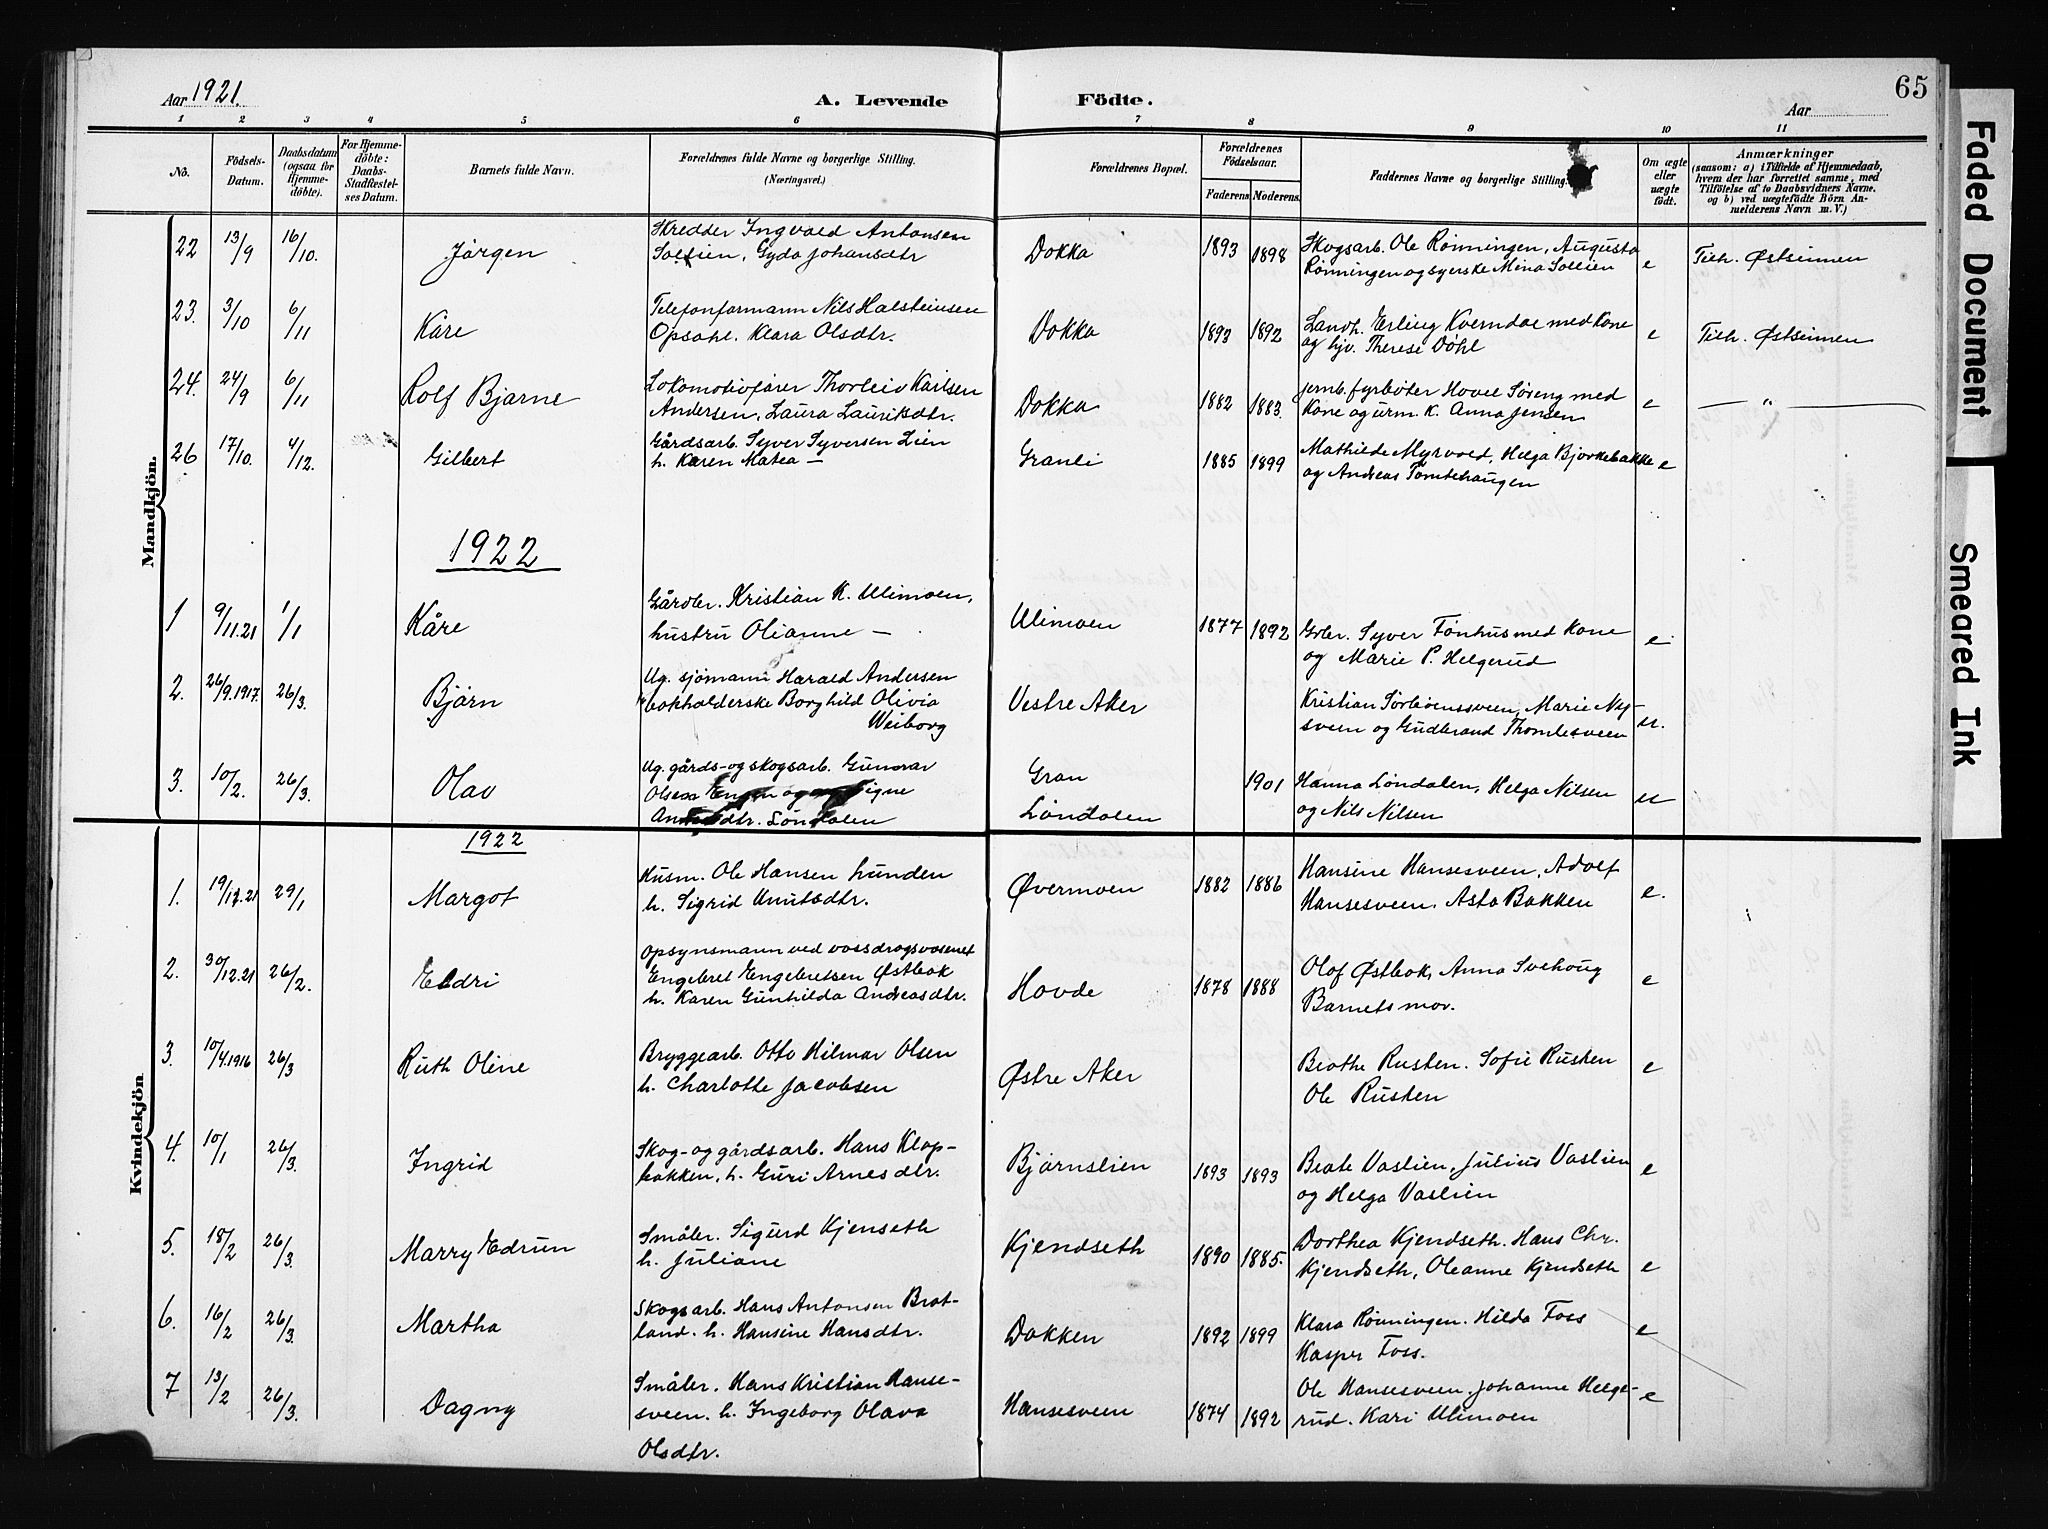 Aar 1921.
A. Levende Födte.
Aar
65
1 2 3 4 5 6 7 8 9 10 11
No.
Födsels-Datum.
Daabsdatum (ogsaa for Hjemmedöbte).
For Hjemmedöbte: Daabs-Stadfæstelses Datum.
Barnets fulde Navn.
Forældrenes fulde Navne og borgerlige Stilling. (Næringsvei.)
Forældrenes Bopæl.
Forældrenes Födselsaar.
Faderens Moderens.
Faddernes Navne og borgerlige Stilling.
Om ægte eller uægte født.
Anmærkninger
(saasom: a) i Tilfælde af Hjemmedaab, hvem der har forrettet samme, med Tilföielse af to Daabsvidners Navne. og b) ved uægtefödte Börn Anmelderens Navn m. V.)
Mandkjön.
22 13/9 16/10. Jørgen Skredder Ingvald Antonsen Dokka 1893 1898 Skogsarb. Ole Rønningen, Augusta e Tilh. Østsinnen
Sollien, Gyda Johansdtr Rønningen og syerske Mina Sollien
23. 3/10 6/11 Kåre Telefonformann Nils Halsteinsen Dokka 1893 1892 Landh. Erling Kverndal med Kone e Tilh. Østsinnen
Opsahl. Klara Olsdtr. og hjv. Therese Døhl
24. 24/9 6/11 Rolf Bjarne Lokomotivfører Thorleiv Karlsen Dokka 1882 1883. jernb. fyrbøter Hovel Søreng med e — " —
Andersen, Laura Lauritsdtr. Kone og urm. K. Anna Jensen
26 17/10. 4/12. Gilbert Gårdsarb. Syver Syversen Lien Granli 1885 1899 Mathilde Myrvold, Helga Bjørkebakke e
h. Karen Matea — og Andreas Tomtehaugen
1922
1 9/11.21 1/1 Kåre Gårdbr. Kristian K. Ulimoen, Ulimoen 1877 1892 Gbr. Syver Tønhus med Kone e
hustru Olianne — og Marie P. Helgerud
2. 26/9.1917. 26/3. Bjørn Ug. sjømann Harald Andersen Vestre Aker Kristian Sørbøenssveen, Marie Ny- u.
bokholderske Borghild Olivia sveen og Gudbrand Thomlesveen
Weiborg
3. 10/2. 26/3. Olav Ug. gårds- og skogsarb. Gunnar Gran 1901 Hanna Løndalen, Helga Nilsen u
Olsen Engen og Signe Løndalen og Nils Nilsen
dtr. Løndalen
Kvindekjön
1922
1. 19/12.21 29/1 Margot Husm. Ole Hansen hunden Øvermoen 1882 1886 Hansine Hansesveen, Adolf e.
h. Sigrid Knutsdtr. Hansesveen, Asta Bakken
2. 30/12.21 26/2. Eldri Opsynsmann ved vassdragsvesenet Hovde 1878 1888 Olof Østbak, Anna Svehoug e
Engebret Engebretsen Østbak Barnets mor.
h. Karen Gunhilda Andreasdtr.
3. 10/4.1916 26/3 Ruth Oline Bryggearb. Otto Hilmar Olsen Østre Aker Beathe Rusten. Sofie Rusten e
h. Charlotte Jacobsen Ole Rusten
4. 10/1 26/3. Ingrid Skog- og gårdsarb. Hans Klop- Bjørnslien 1893 1893 Beate Vaslien, Julius Vaslien e
bakken, h. Guri Arnesdtr. og Helga Vaslien
5. 18/2 26/3. Marry Edrun Småbr. Sigurd Kjenseth Kjendseth 1890 1885. Dorthea Kjendseth. Hans Chr. e
h. Juliane Kjendseth, Oleanne Kjendseth
6. 16/2 26/3. Martha Skogsarb. Hans Antonsen Brat- Dokken 1892 1899 Klara Rønningen. Hilda Foss e
land. h. Hansine Hansdtr. Kasper Foss.
7 13/2 26/3. Dagny Småbr. Hans Kristian Hanse- Hansesveen 1874 1892 Ole Hansesveen. Johanne Helge- e
sveen. h. Ingeborg Olava rud. Kari Ulimoen
Olsdtr.
Faded Document
Smeared Ink